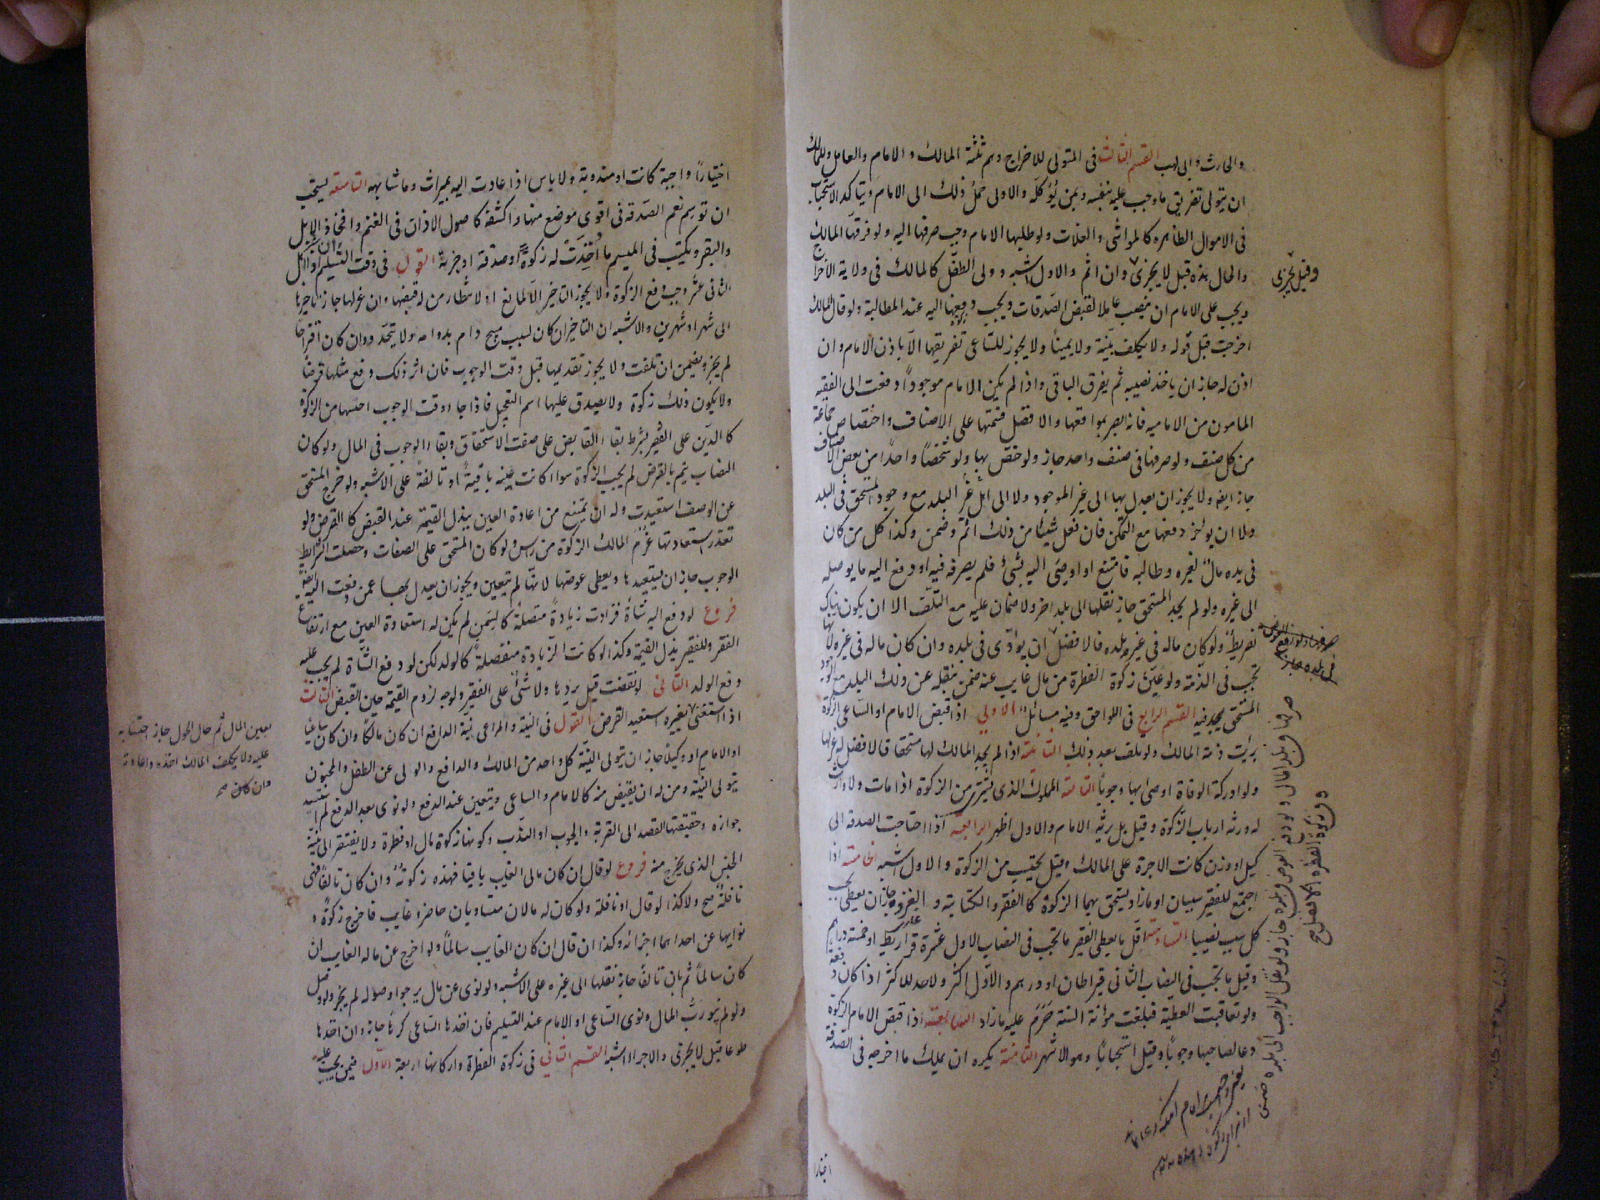 والحارث وابي لهب القسم الثالث في المتولي للاخراج وهم ثلثة المالك والامام والعامل وللمالك
ان يتولى تفريق ما وجب عليه بنفسه وبمن يوكله والاولى حمل ذلك الى الامام ويتاكد الاستحباب
في الاموال الظاهره كالمواشي والغلات ولو طلبها الامام وجب صرفها اليه ولو فرقها المالك
والحال هذه قيل لا يجزي وان اثم والاول اشبه وولي الطفل كالمالك في ولاية الاخراج
ويجب على الامام ان ينصب عاملا لقبض الصدقات ويجب دفعها اليه عند المطالبة ولو قال المالك
اخرجت قبل قوله ولا يكلف بينة ولا يمينا ولا يجوز للساعي تفريقها الا باذن الامام وان
اذن له جاز ان ياخذ نصيبه ثم يفرق الباقي واذا لم يكن الامام موجودا دفعت الى الفقيه
المامون من الاماميه فانه ابصر بمواقعها والافضل قسمتها على الاصناف واختصاص جماعة
من كل صنف ولو صرفها في صنف واحد جاز ولو خص بها ولو شخصا واحدا من بعض الاصناف
جاز ايضا ولا يجوز ان يعدل بها الى غير الموجود ولا الى اهل غير البلد مع وجود المستحق في البلد
ولا ان يوخر دفعها مع التمكن فان فعل شيئا من ذلك اثم وضمن وكذا كل من كان
في يده مال لغيره وطالبه فامتنع او اوصى اليه بشئ فلم يصرفه فيه او دفع اليه ما يوصله
الى غيره ولو لم يجد المستحق جاز نقلها الى بلد اخر ولا ضمان عليه مع التلف الا ان يكون هناك
تفريط ولو كان ماله في غير بلده فالافضل ان يؤدى في بلده وان كان ماله في غيره لانها
تجب في الذمة ولو عين زكوة الفطرة من مال غايب عنه ضمن بنقله عن ذلك البلد مع وجود
المستحق بحمد فيه القسم الرابع في اللواحق وفيه مسائل الاولى اذا قبض الامام او الساعي الزكوة
برئت ذمة المالك ولو تلفت بعد ذلك الثانية اذا لم يجد المالك لها مستحقا فالافضل له عزلها
ولو ادركته الوفاة اوصى بها وجوبا الثالثة المملوك الذي يشترى من الزكوة اذا مات ولا وارث
له ورثه ارباب الزكوة وقيل بل يرثه الامام والاول اظهر الرابعة اذا احتاجت الصدقه الى
كيل او وزن كانت الاجرة على المالك وقيل يحتسب من الزكوة والاول اشبه الخامسة اذا
اجتمع للفقير سببان او ما زاد يستحق بهما الزكوة كالفقر والكتابة والغزو جاز ان يعطى بحسب
كل سبب نصيبا السادسة اقل ما يعطى الفقير ما يجب في النصاب الاول عشرة قراريط او خمسة دراهم
وقيل ما يجب في النصاب الثاني قيراطان او درهم والاول اكثر ولا حد للاكثر اذا كان دفعة
ولو تعاقبت العطية فبلغت مؤنة السنة حرم عليه ما زاد السابعة اذا قبض الامام الزكوة
دعا لصاحبها وجوبا وقيل استحبابا وهو الاشهر الثامنة يكره ان يملك ما اخرجه في الصدقة
وقيل يجزي
اختيارا
اختيارا واجبة كانت او مندوبة ولا باس اذا عادت اليه بميراث وما شابهه التاسعة يستحب
ان توسم نعم الصدقة في اقوى موضع منها واكشفه كاصول الاذان في الغنم وافخاذ الابل
والبقر ويكتب في الميسم ما اخذت له زكوة او صدقة او جزية القول في وقت التسليم اذا اهل
الثاني عشر وجب دفع الزكوة ولا يجوز التاخير الا لمانع او لانتظار من له قبضها وان عزلها جاز تاخيرها
الى شهر او شهرين والاشبه ان التاخير ان كان لسبب مبيح دام بدوامه ولا يتحدد وان كان اقتراحا
لم يجز ويضمن ان تلفت ولا يجوز تقديمها قبل وقت الوجوب فان اثر ذلك دفع مثلها قرضا
ولا يكون ذلك زكوة ولا يصدق عليها اسم التعجيل فاذا جاء وقت الوجوب احتسبها من الزكوة
كالدين على الفقير بشرط بقاء القابض على صفت الاستحقاق وبقاء الوجوب في المال ولو كان
النصاب يتم بالقرض لم يجب الزكوة سواء كانت عينه باقية او تالفة على الاشبه ولو خرج المستحق
عن الوصف استعيدت وله ان يمتنع من اعادة العين ببذل القيمة عند القبض كالقرض ولو
تعذر استعادتها غرم المالك الزكوة من راس ولو كان المستحق على الصفات وحصلت شرايط
الوجوب جاز ان يستعيدها ويعطى عوضها لانها لم تتعين ويجوز ان يعدل بها عمن دفعت اليه ايضا
فروع لو دفع اليه شاة فزادت زيادة متصلة كالسمن لم يكن له استعادة العين مع ارتفاع
الفقر وللفقير بذل القيمة وكذا لو كانت الزيادة منفصلة كالولد لكن لو دفع الشاة لم يجب عليه
دفع الولد الثاني لو نقصت قيل يردها ولا شئ على الفقير والوجه لزوم القيمة حين القبض الثالث
اذا استغنى بغيره استعيد القرض القول في النية والمراعى نية الدافع ان كان مالكا وان كان ساعيا
او الامام او وكيلا جاز ان يتولى النية كل واحد من المالك والدافع والولي عن الطفل والمجنون
يتولى النية ومن له ان يقبض منه كالامام والساعي ويتعين عند الدفع ولو نوى بعد الدفع لم استبعد
جوازه وحقيقتها القصد الى القربة والوجوب او الندب وكونها زكوة مال او فطرة ولا يفتقر الى نية
الجنس الذي يخرج منه فروع لو قال ان كان مالي الغايب باقيا فهذه زكوته وان كان تالفا فهي
نافلة صح ولا كذا لو قال او نافلة ولو كان له مالان متساويان حاضر وغايب فاخرج زكوة و
نواها عن احدهما اجزاته وكذا ان قال ان كان الغايب سالما ولو اخرج عن ماله الغايب ان
كان سالما ثم بان تالفا جاز نقلها الى غيره على الاشبه ولو نوى عن مال يرجوا وصوله لم يجز ولو وصل
ولو لم ينو رب المال ونوى الساعي او الامام عند التسليم فان اخذها الساعي كرها جاز وان اخذها
طوعا قيل لا يجزي والاجزاء اشبه القسم الثاني في زكوة الفطرة واركانها اربعة الاول فيمن يجب عليه
بعين المال ثم حال الحول جاز احتسابه
عليه ولا يكلف المالك اخذه واعادته
وان كان